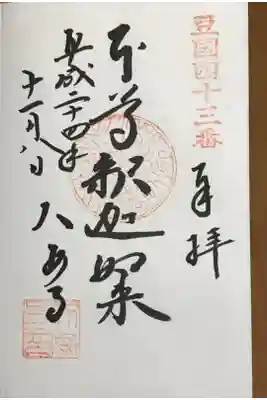 豆国四十三番
奉拝
本尊釈迦如来
大安寺
平成二十四年
十一月八日